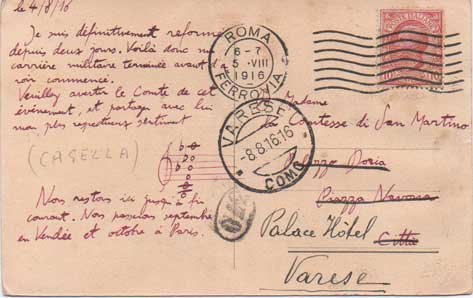 le 4/8/16
Je suis définitivement reformé
depuis deux jours. Voilà donc ma
carrière militaire terminée avant d'a-
voir commencé.
Veuillez avertir le Comte de cet
événement, et partager avec lui
mes plus respectueux sentiments
(CASELLA)
Nous restons ici jusqu'à fin
courant. Nous passons septembre
en Vendée et octobre à Paris.
ROMA
6-7
5 · VIII
1916
FERROVIA
POSTE ITALIANE
VARESE
-8.8.16.16
COMO
Madame
la Comtesse di San Martino
Palazzo Doria
Piazza Navona
Città
Palace Hôtel
Varese